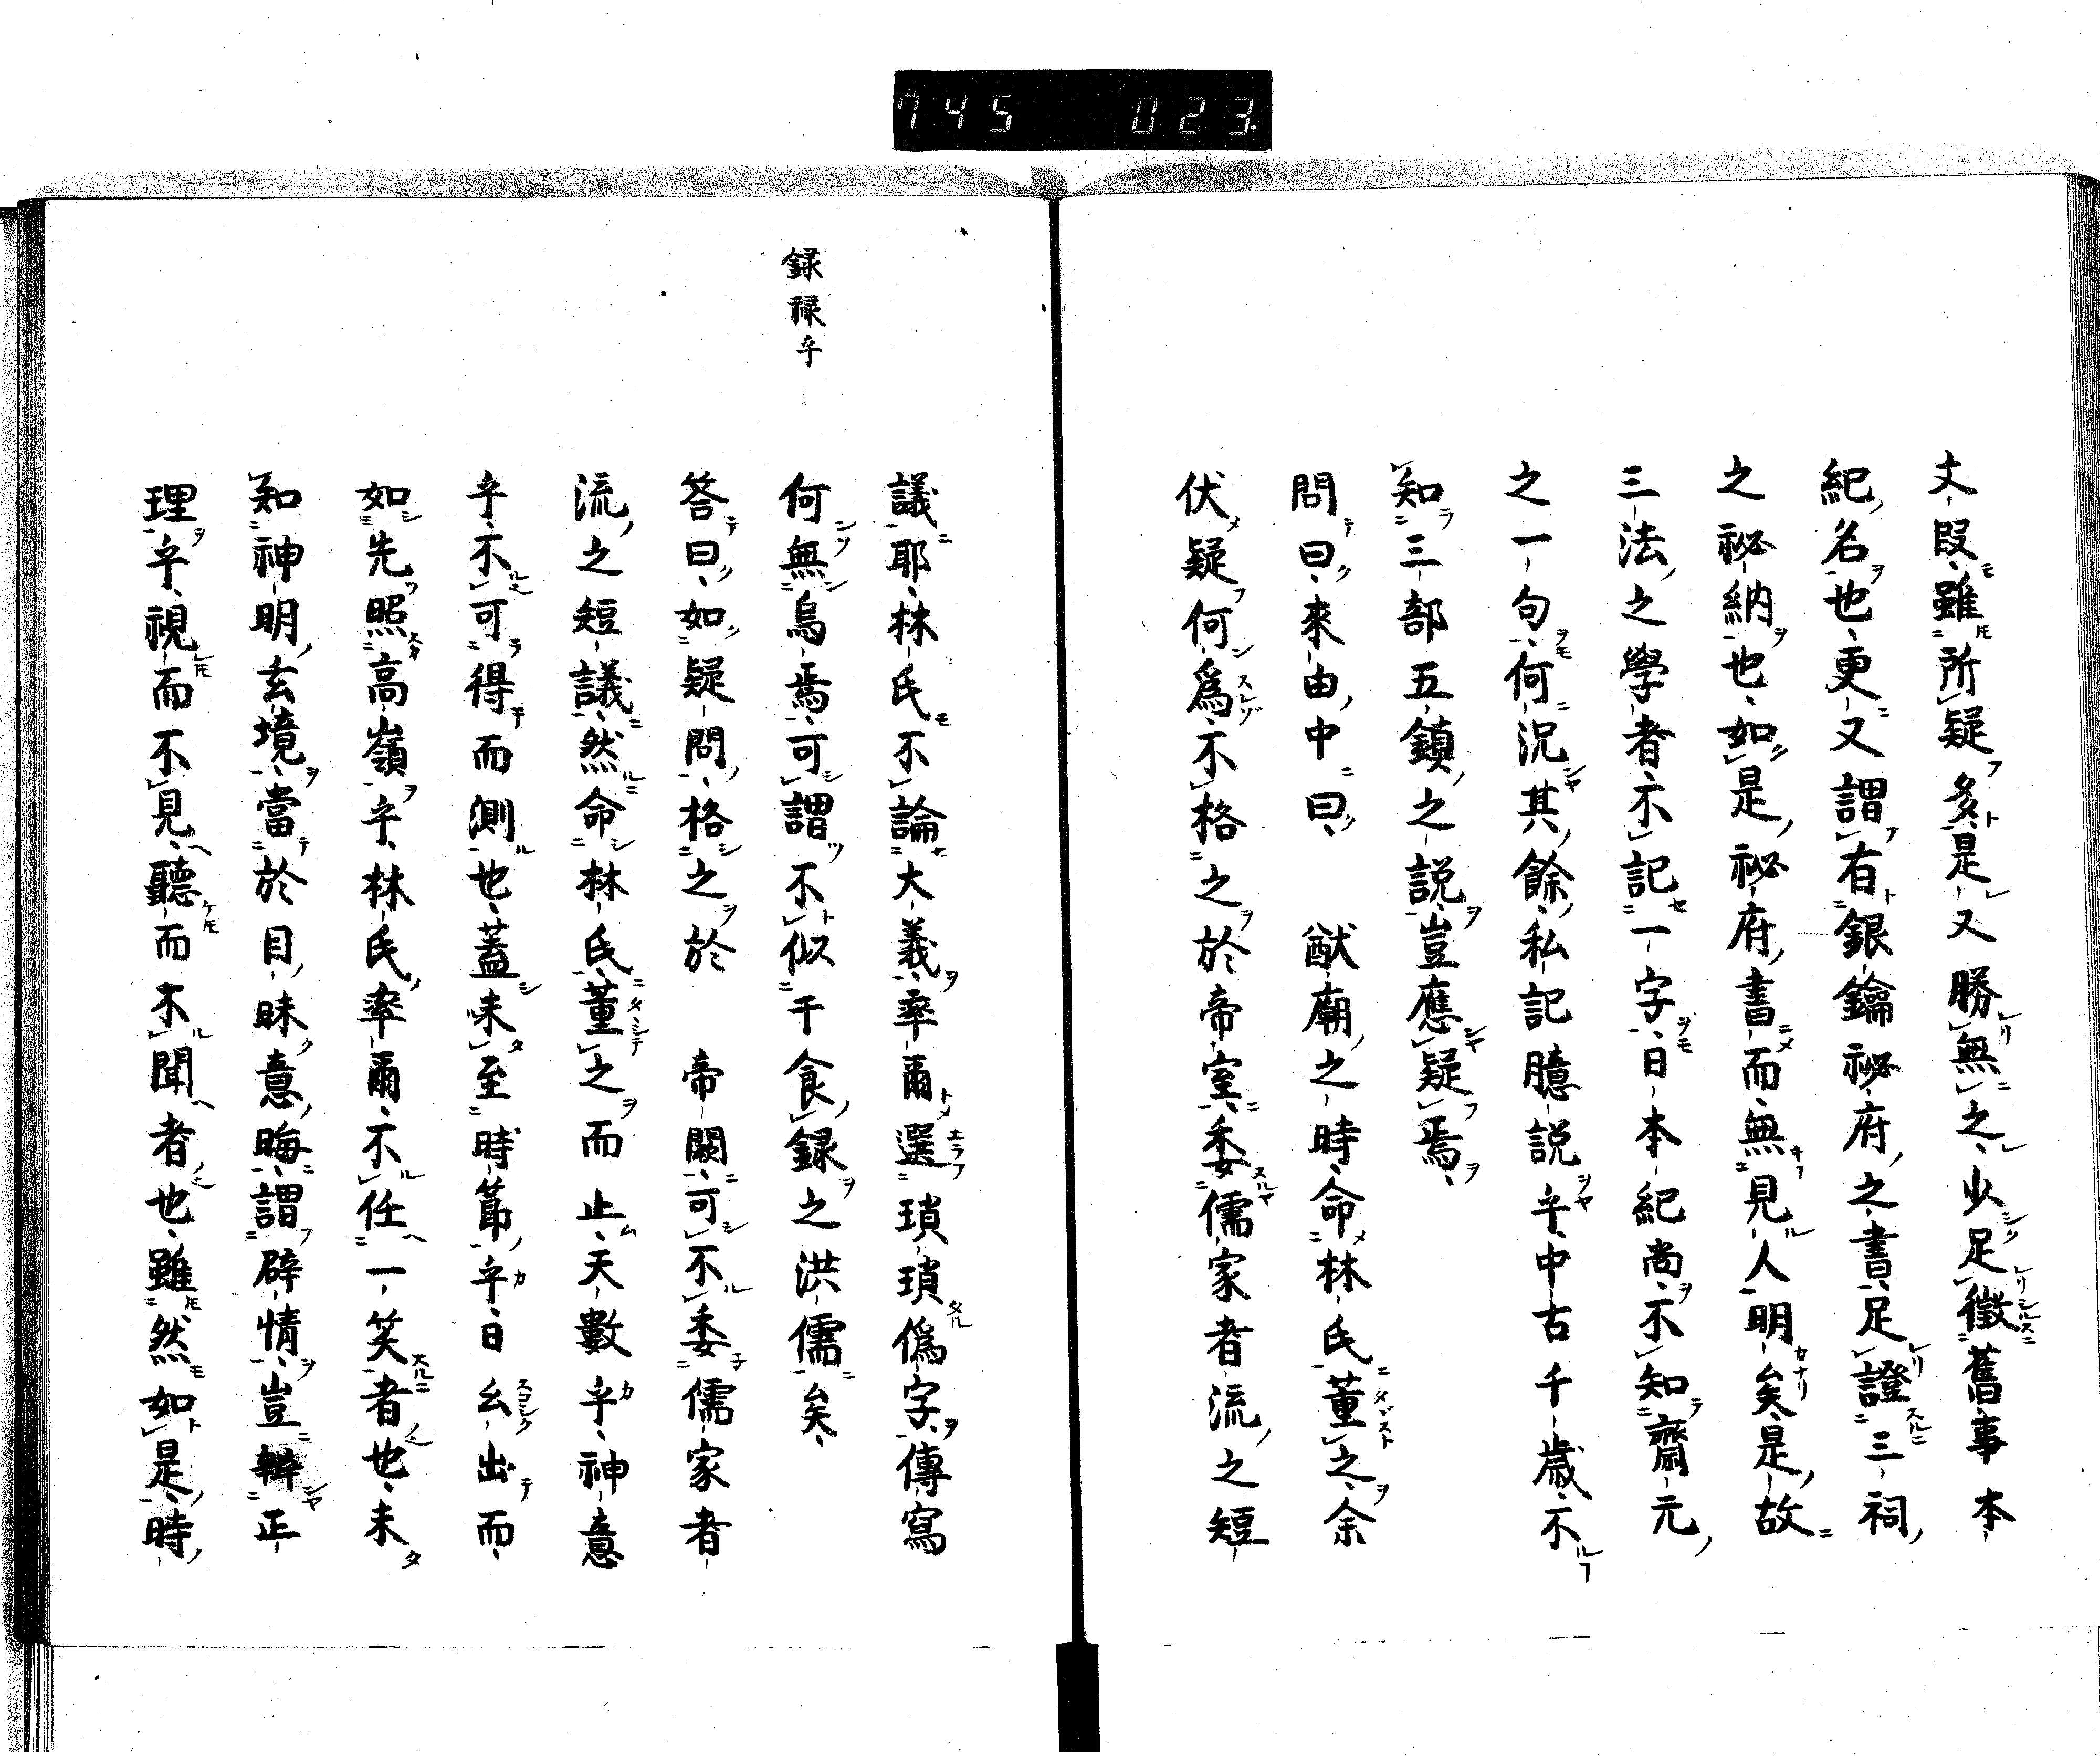 745 023.
文段雖所疑多是又勝無之少足徵舊事本
紀名也更又謂有銀鑰祕府之書足證三祠
之祕納也如是祕府書而無見人明矣是故
三法之學者不記一字日本紀尚不知齋元
之一句何況其餘私記臆説乎中古千歳不
知三部五鎮之説豈應疑焉
問曰來由中曰 猷廟之時命林氏董之余
伏疑何爲不格之於帝室委儒家者流之短
録禄乎
議耶林氏不論大義率爾選瑣瑣僞字傳寫
何無烏焉可謂不似干食録之洪儒矣
答曰如疑問格之於 帝闕可不委儒家者
流之短議然命林氏董之而止天數乎神意
乎不可得而測也蓋未至時節乎日幺出而
如先照高嶺乎林氏率爾不任一笑者也未
知神明玄境當於目昧意晦謂辟情豈辨正
理乎視而不見聽而不聞者也雖然如是時